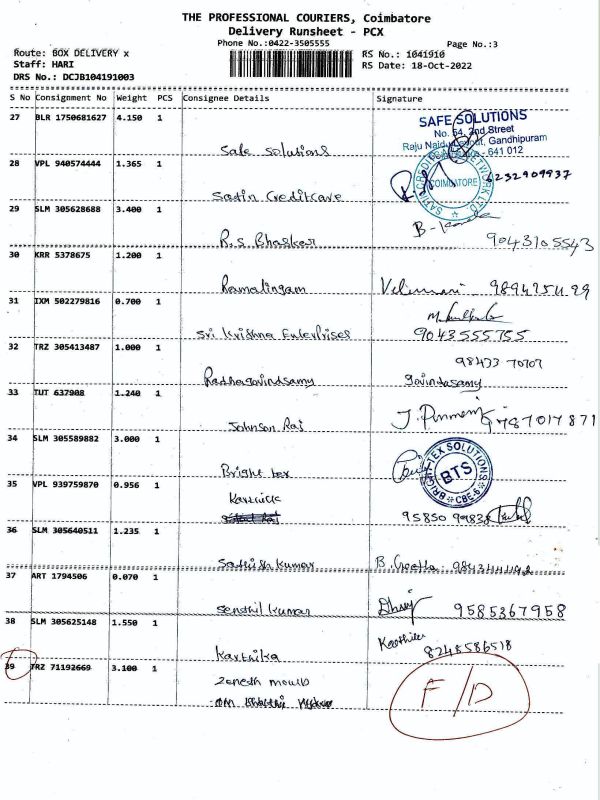 THE PROFESSIONAL COURIERS, Coimbatore
Delivery Runsheet - PCX
Phone No.:0422-3505555
Page No.:3
Route: BOX DELIVERY x
RS No.: 1041910
Staff: HARI
RS Date: 18-Oct-2022
DRS No.: DCJB104191003
S No Consignment No Weight PCS Consignee Details Signature
27 BLR 1750681627 4.150 1
Safe Solutions
SAFE SOLUTIONS
No. 64, 2nd Street
Gandhipuram
641 012
28 VPL 940574444 1.365 1
Satin Creditcare
COIMBATORE
6232909937
29 SLM 305628688 3.400 1
R.S Bhasker
9043105543
30 KRR 5378675 1.200 1
Ramalingam
31 IXM 502279816 0.700 1
Sri Krishna Enterprises
9043555755
32 TRZ 305413487 1.000 1
98433 70707
Radhagovindsamy
govindasamy
33 TUT 637908 1.240 1
Johnson Raj
787017871
34 SLM 305589882 3.000 1
Bright tex
BRIGHT TEX SOLUTIONS
BTS
CBE-6
35 VPL 939759870 0.956 1
Karthick
95850
36 SLM 305640511 1.235 1
Sathish kumar
B. Geetha
37 ART 1794506 0.070 1
Senthil kumar
9585367958
38 SLM 305625148 1.550 1
Karthika
8248586518
39 TRZ 71192669 3.100 1
F/D